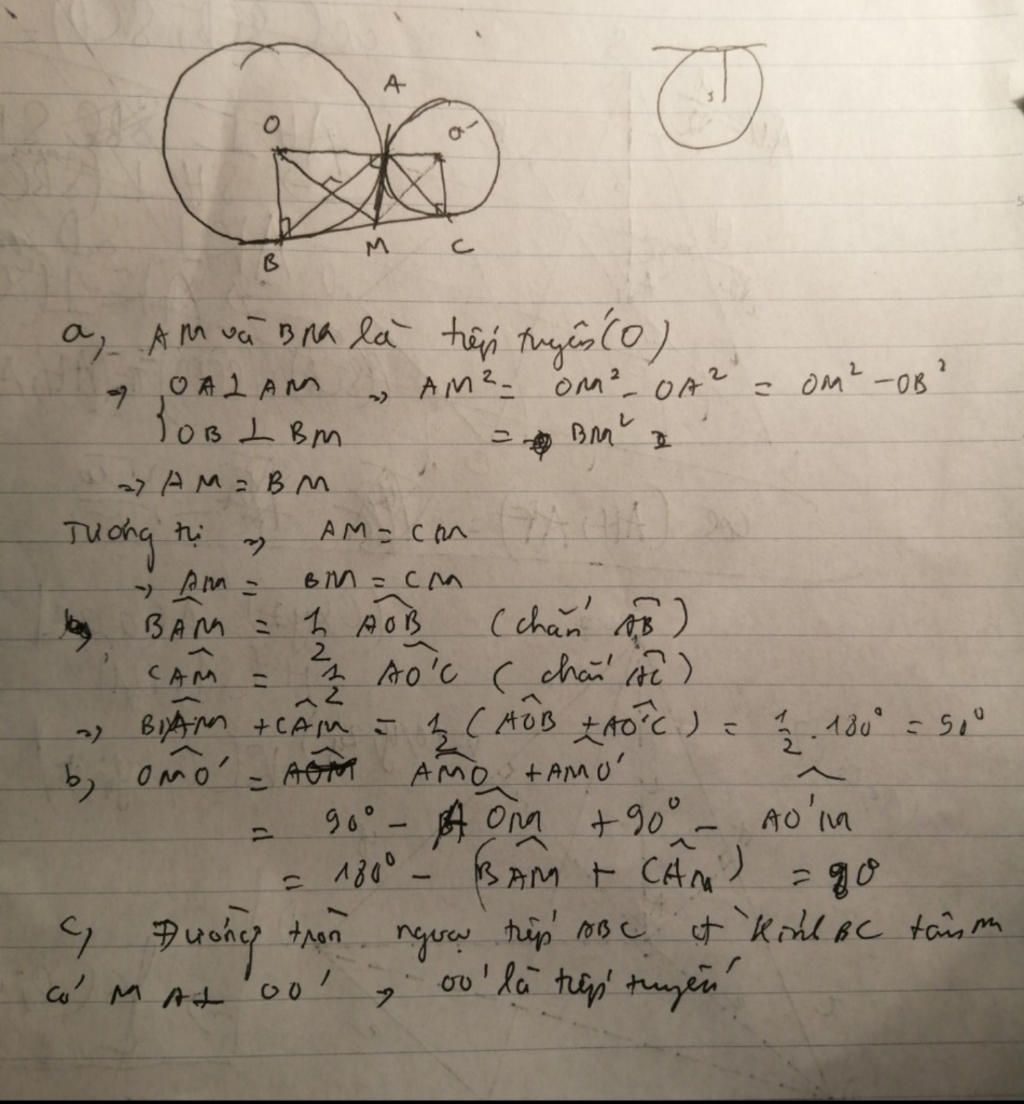 A
O
O'
B
M
C
a, AM và BM là tiếp tuyến (O)
=> { OA ⊥ AM => AM² = OM² - OA² = OM² - OB²
OB ⊥ BM = BM²
=> AM = BM
Tương tự => AM = CM
=> AM = BM = CM
BAM = 1/2 AOB (chắn AB)
CAM = 1/2 AO'C (chắn AC)
=> BAM + CAM = 1/2 (AOB + AO'C) = 1/2 . 180° = 90°
b, OMO' = AMO + AMO'
= 90° - AOM + 90° - AO'M
= 180° - (BAM + CAM) = 90
c, Đường tròn ngoại tiếp ABC đ kính BC tâm M
có MA ⊥ OO' => OO' là tiếp tuyến